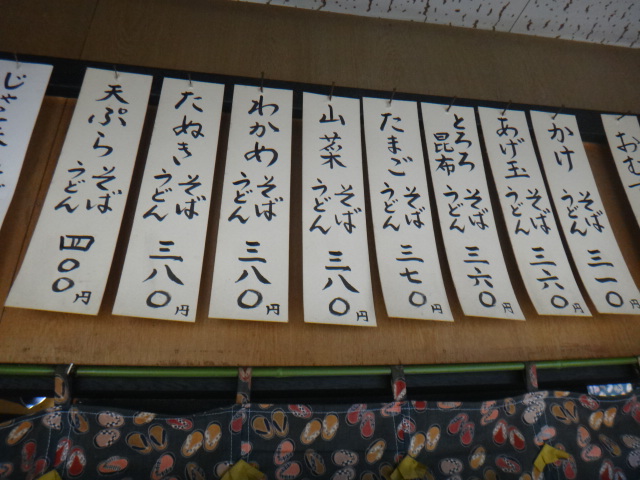 おむ
かけ そば うどん 三一〇円
あげ玉 そば うどん 三六〇円
とろろ昆布 そば うどん 三六〇円
たまご そば うどん 三七〇円
山菜 そば うどん 三八〇円
わかめ そば うどん 三八〇円
たぬき そば うどん 三八〇円
天ぷら そば うどん 四〇〇円